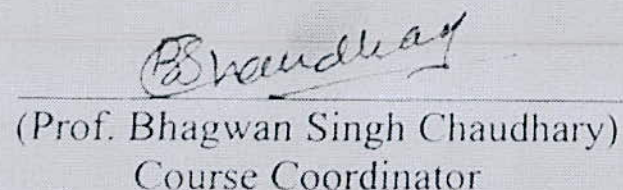 BSChaudhary
(Prof. Bhagwan Singh Chaudhary)
Course Coordinator